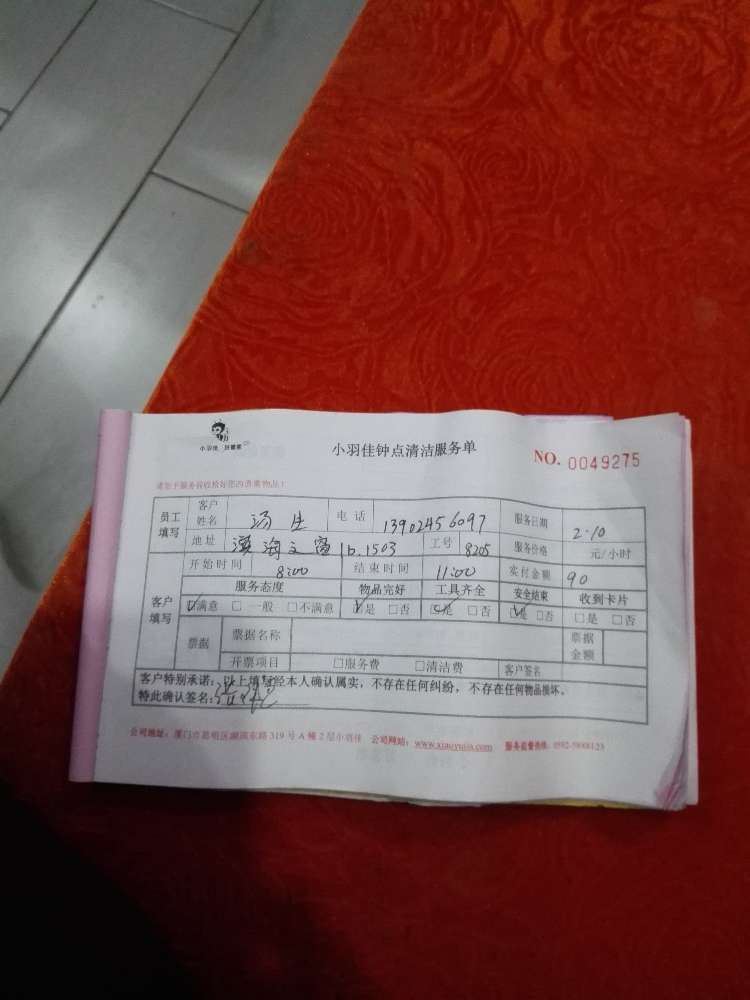 小羽佳
小羽佳钟点清洁服务单
NO. 0049275
员工填写 客户姓名 汤生 电话 13902456097 服务日期 2.10
地址 16.1503 工号 8205 服务价格 元/小时
客户填写 开始时间 8:00 结束时间 11:00 实付金额 90
服务态度 物品完好 工具齐全 安全结束 收到卡片
☑满意 □一般 □不满意 ☑是 □否 ☑是 □否 ☑是 □否 □是 □否
票据 票据名称 票据金额
开票项目 □服务费 □清洁费 客户签名
客户特别承诺：以上填写经本人确认属实，不存在任何纠纷，不存在任何物品损坏。
特此确认签名：
公司地址：厦门市思明区湖滨东路 319 号 A 幢 2 层小羽佳 公司网站：www.xiaoyujia.com 服务监督热线：